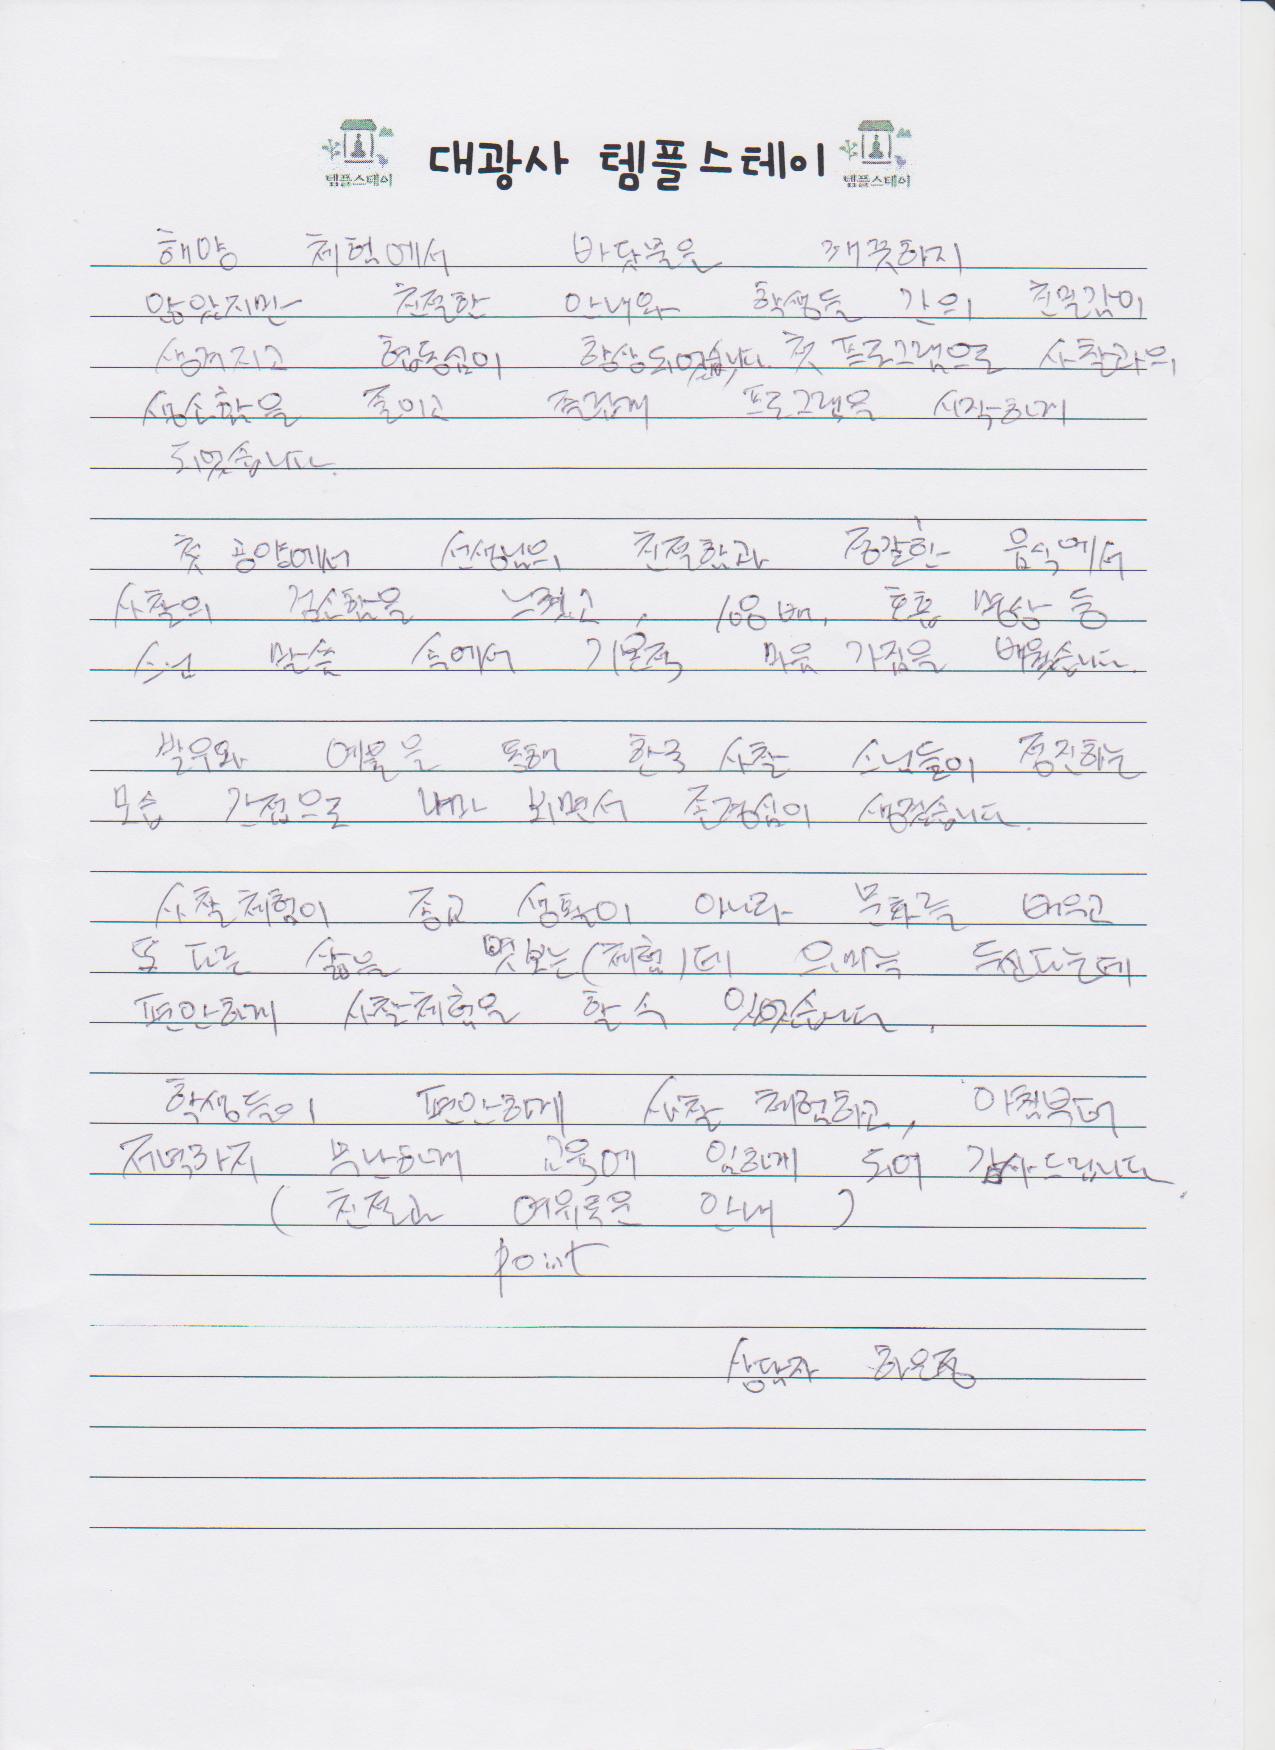 템플스테이 대광사 템플스테이 템플스테이
해양 체험에서 바닷물은 깨끗하지
않았지만 친절한 안내와 학생들 간의 친밀감이
생겨지고 협동심이 향상되었습니다. 첫 프로그램으로 사찰과의
생소함을 줄이고 즐겁게 프로그램을 시작하게
되었습니다.
첫 공양에서 선생님의 친절함과 정갈한 음식에서
사찰의 검소함을 느꼈고, 108배, 호흡 명상 등
스님 말씀 속에서 기본적 마음 가짐을 배웠습니다.
발우와 예불을 통해 한국 사찰 스님들이 정진하는
모습 간접으로 나마 뵈면서 존경심이 생겼습니다.
사찰체험이 종교 생활이 아니라 문화를 배우고
또 다른 삶을 맛보는(체험)데 의미를 두신다는데
편안하게 사찰체험을 할 수 있었습니다.
학생들이 편안하게 사찰 체험하고, 아침부터
저녁까지 부산하게 교육에 임하게 되어 감사드립니다.
( 친절과 여유로운 안내 )
point
상담자